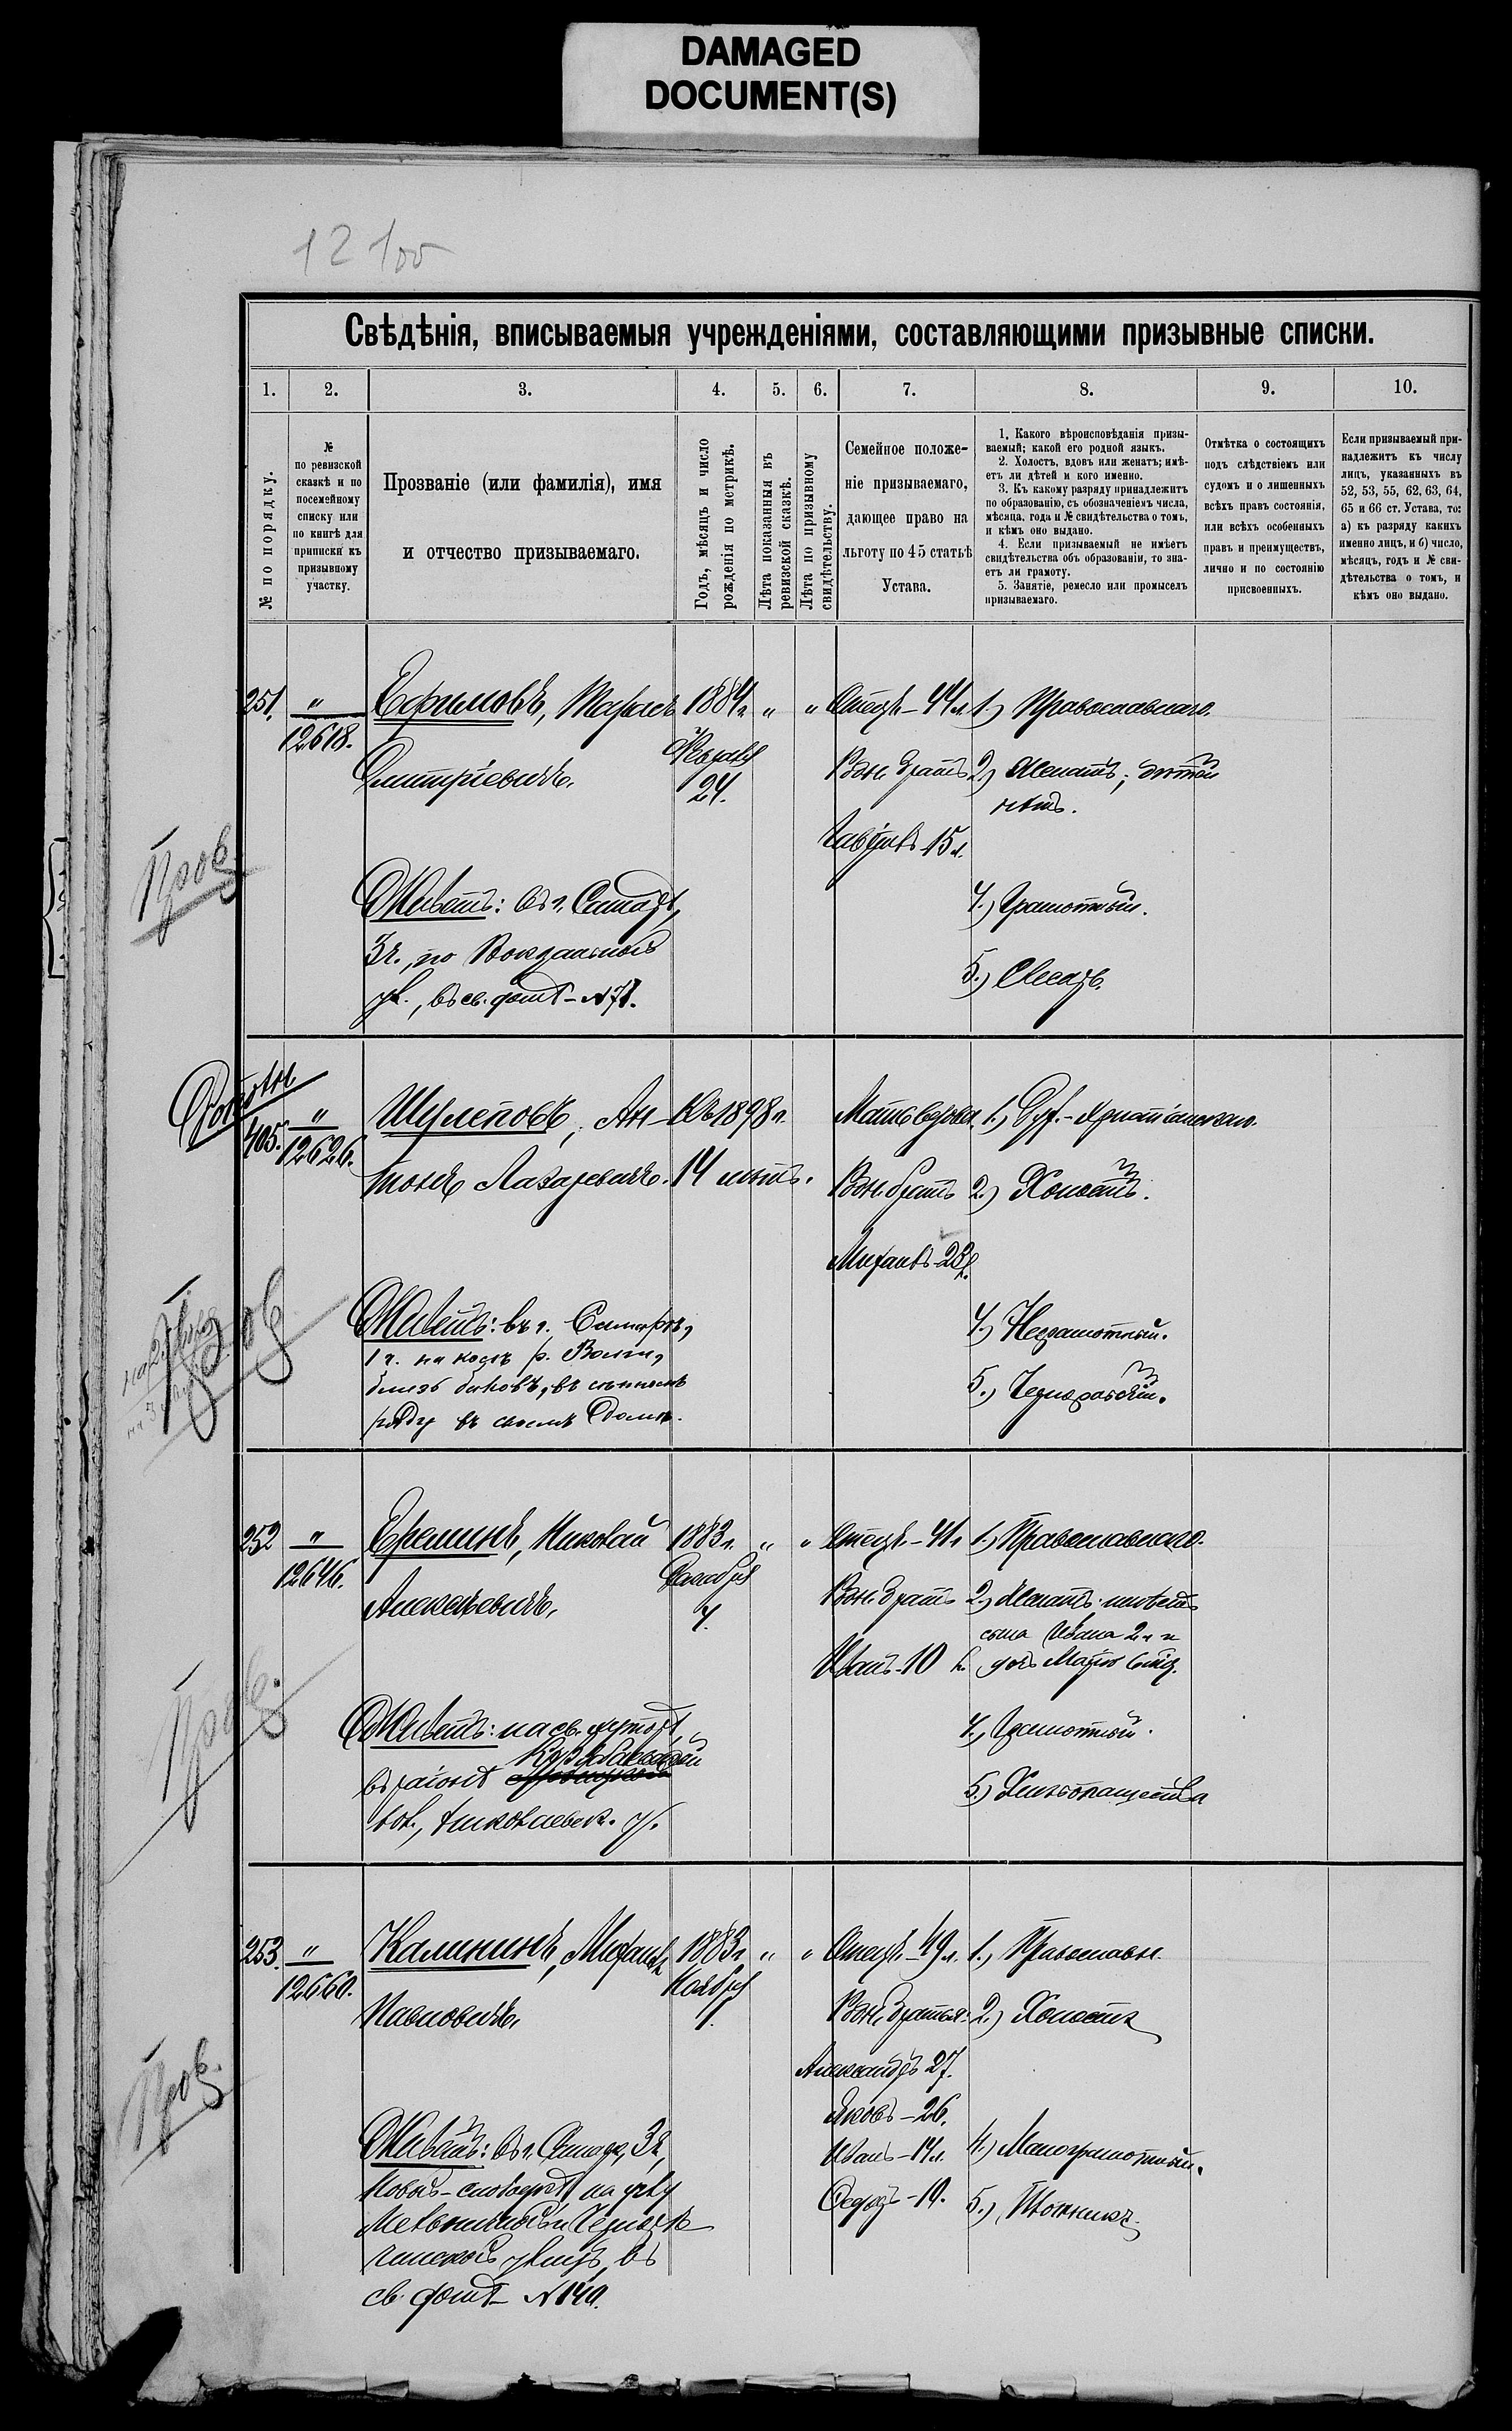 DAMAGED
DOCUMENT(S)
12
Свѣдѣнія, вписываемыя учрежденіями, составляющими призывные списки.
1. 2. 3. 4. 5. 6. 7. 8. 9. 10.
№ по порядку.
№
по ревизской
сказкѣ и по
посемейному
списку или
по книгѣ для
приписки къ
призывному
участку.
Прозваніе (или фамилія), имя
и отчество призываемаго.
Годъ, мѣсяцъ и число
рожденія по метрикѣ.
Лѣта показанныя въ
ревизской сказкѣ.
Лѣта по призывному
свидѣтельству.
Семейное положе-
ніе призываемаго,
дающее право на
льготу по 45 статьѣ
Устава.
1. Какого вѣроисповѣданія призы-
ваемый; какой его родной языкъ.
2. Холостъ, вдовъ или женатъ; имѣ-
етъ ли дѣтей и кого именно.
3. Къ какому разряду принадлежитъ
по образованію, съ обозначеніемъ числа,
мѣсяца, года и № свидѣтельства о томъ,
и кѣмъ оно выдано.
4. Если призываемый не имѣетъ
свидѣтельства объ образованіи, то зна-
етъ ли грамоту.
5. Занятіе, ремесло или промыселъ
призываемаго.
Отмѣтка о состоящихъ
подъ слѣдствіемъ или
судомъ и о лишенныхъ
всѣхъ правъ состоянія,
или всѣхъ особенныхъ
правъ и преимуществъ,
лично и по состоянію
присвоенныхъ.
Если призываемый при-
надлежитъ къ числу
лицъ, указанныхъ въ
52, 53, 55, 62, 63, 64,
65 и 66 ст. Устава, то:
а) къ разряду какихъ
именно лицъ, и б) число,
мѣсяцъ, годъ и № сви-
дѣтельства о томъ, и
кѣмъ оно выдано.
251. " Ефимовъ, Тарасъ 1884г. " " Отецъ - 44л. 1.) Православнаго.
12618. Февраля
Дмитріевичъ. 24. Род. братъ 2.) Женатъ; дѣтей
нѣтъ.
15 л.
Пров.
Живетъ: въ г. Самарѣ, 4.) Грамотный.
3 ч., по Вокзальной 5.) Слесарь.
ул., въ св. домѣ - №71.
405. " Шулеповъ, Ан- Въ 1898 г. Мать вдова. 1.) Христіанскаго.
12626. тонъ Лазаревичъ. 14 лѣтъ. Род. братъ 2.) Холостъ.
Михаилъ
Живетъ: въ г. Самарѣ, 4.) Неграмотный.
1 ч. на косѣ р. Волги, 5.) Чернорабочій.
близъ въ
ряду въ своемъ домѣ.
252 " Ереминъ, Николай 1883 г. " " Отецъ - 41 л 1.) Православнаго.
12646. Декабря
Алексѣевичъ. Род. братъ 2.) Женатъ; имѣетъ
сына Ивана 2 л и
Иванъ - 10 л. дочь Марію 6 мѣс.
Пров.
Живетъ: на св. хуторѣ, 4.) Грамотный.
въ районѣ 5.) Хлѣбопашество
вол., Николаевск. у.
253. " Калининъ, Михаилъ 1883 г. " " Отецъ - 49 л. 1.) Православн.
12660. Ноября
Павловичъ. Род. братья: 2.) Холостъ
Александръ 27.
Яковъ - 26.
Иванъ - 14 л. 4.) Малограмотный.
Федоръ - 10. 5.) Плотникъ.
Пров.
Живетъ: въ г. Самарѣ, 3 ч,
на углу
улицъ, въ
св. домѣ - №140.